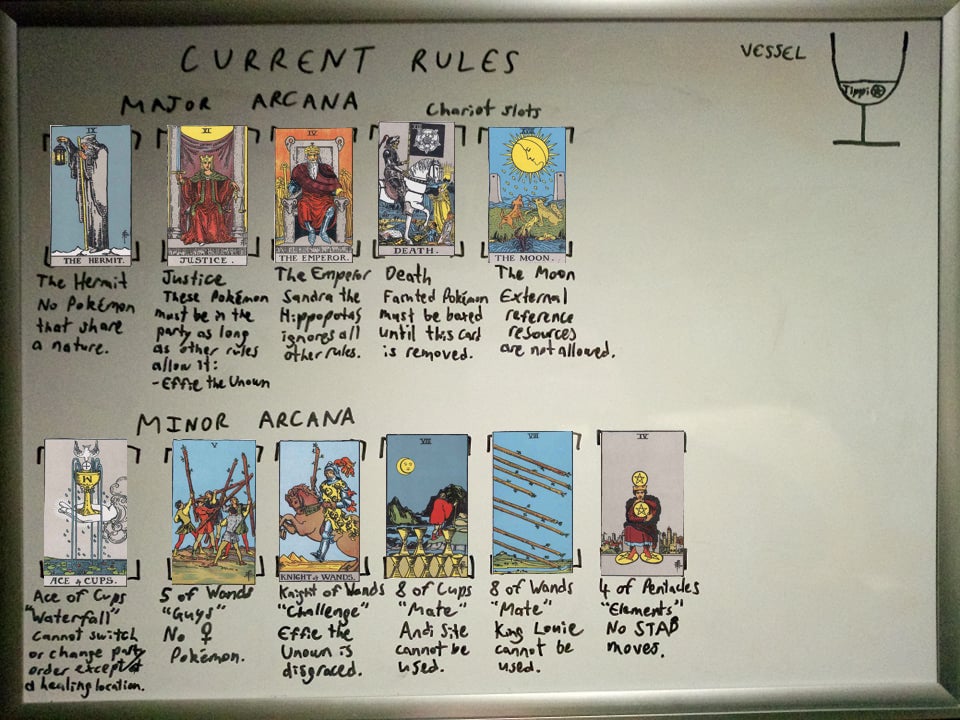 CURRENT RULES
VESSEL
Tippi
MAJOR ARCANA
Chariot slots
IX
THE HERMIT.
XI
JUSTICE.
IV
THE EMPEROR.
XIII
DEATH.
THE MOON.
The Hermit
No Pokémon
that share
a nature.
Justice
These Pokémon
must be in the
party as long
as other rules
allow it:
-Effie the Unown
The Emperor
Sandra the
Hippopotas
ignores all
other rules.
Death
Fainted Pokémon
must be boxed
until this card
is removed.
The Moon
External
reference
resources
are not allowed.
MINOR ARCANA
ACE of CUPS.
V
KNIGHT of WANDS.
VIII
VIII
IV
Ace of Cups
"Waterfall"
Cannot switch
or change party
order except at
a healing location.
5 of Wands
"Guys"
No ♀
Pokémon.
Knight of Wands
"Challenge"
Effie the
Unown is
disgraced.
8 of Cups
"Mate"
Andi Site
cannot be
used.
8 of Wands
"Mate"
King Louie
cannot be
used.
4 of Pentacles
"Elements"
No STAB
moves.